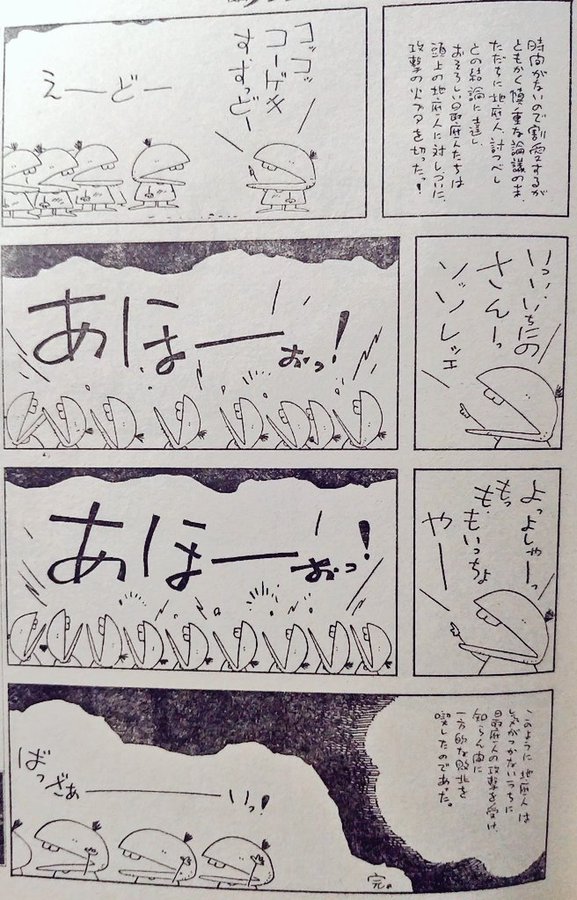 時間がないので割愛するが
ともかく慎重な論議の末、
ただちに地底人討つべし
との結論に達し、
おそろしい最底人たちは
頭上の地底人に対しついに、
攻撃の火ブタを切ったっ!
コッコッ
コーゲキ
すすっどー
えーどー
いっいいちにの
さんーっ
ソッソレッエ
あほーおっ!
よっよしゃーっ
もっも、もいっちょ
やー
あほーおっ!
このように地底人は
気がつかないうちに
最底人の攻撃を受け、
知らん間に
一方的な敗北を
喫したのであった。
ばっざぁーいっ!
完。